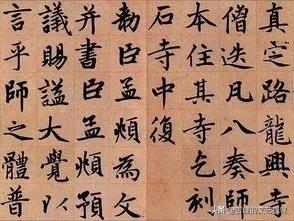 真定路龍興寺
僧迭凡八奏師
本住其寺乞刻
石寺中復
勑臣孟頫為文
并書臣孟頫預
議賜謚大覺以
言乎師之體普
头条